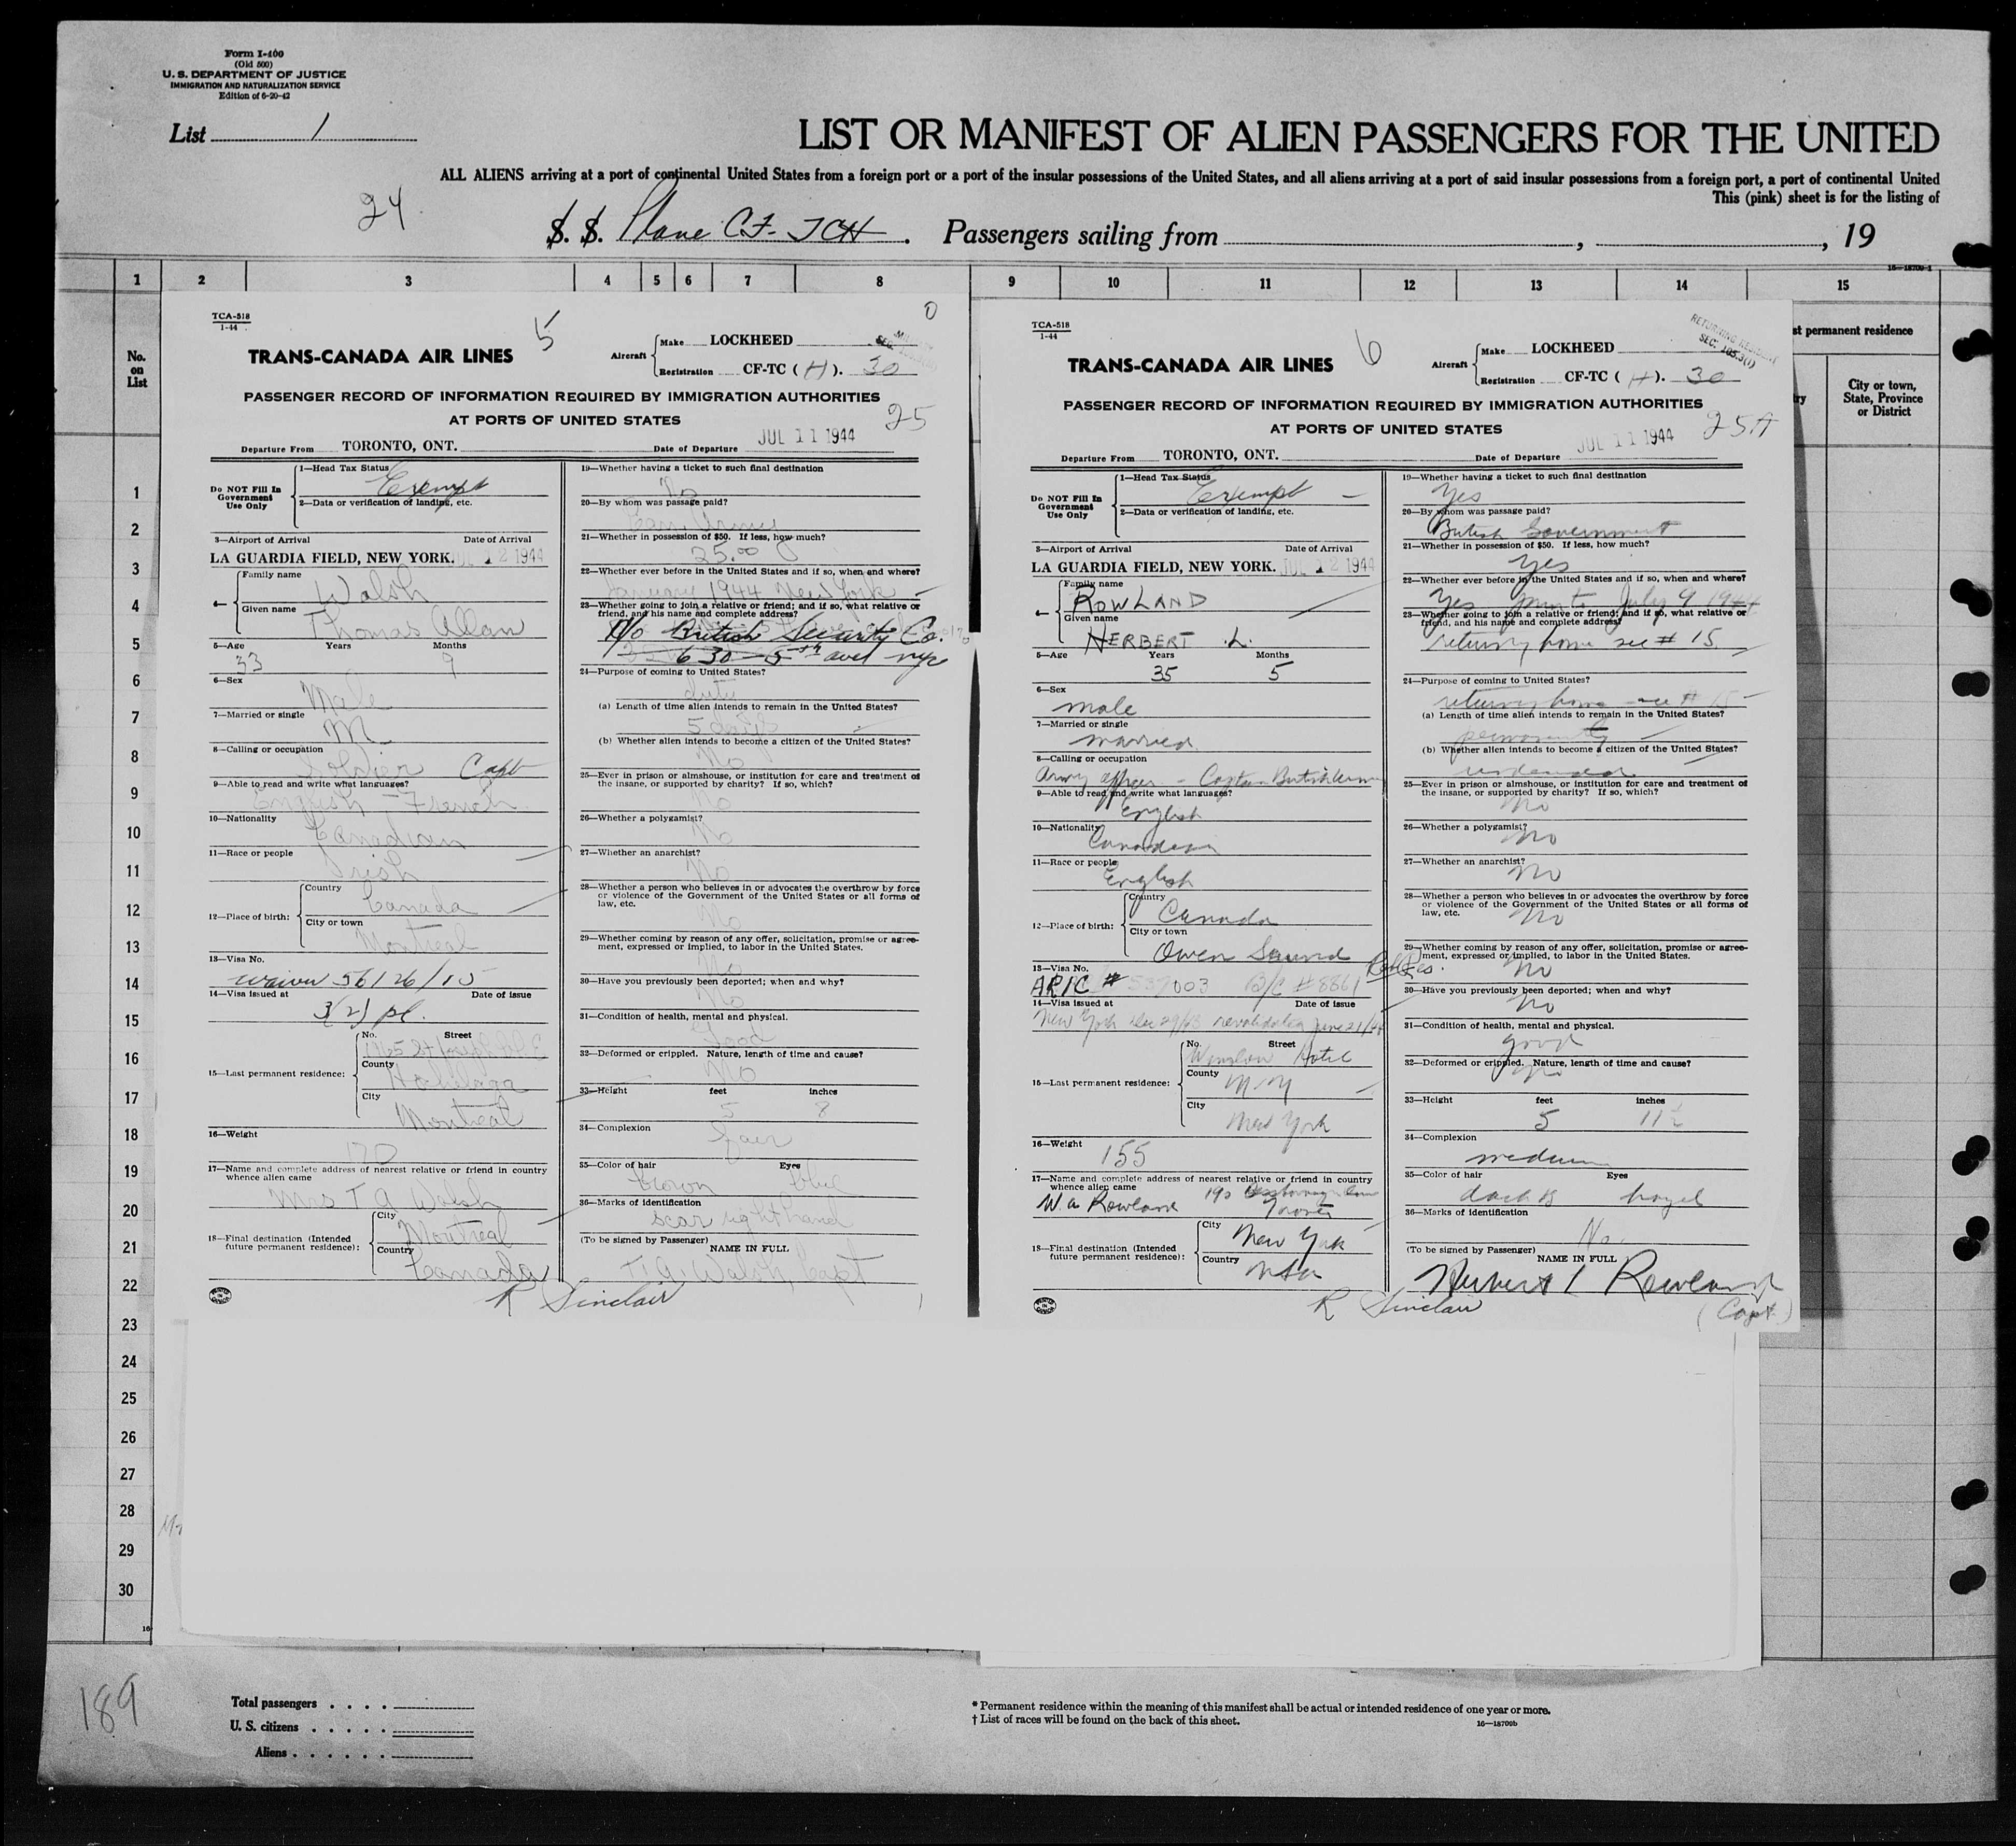 Form I-400
(Old 500)
U. S. DEPARTMENT OF JUSTICE
IMMIGRATION AND NATURALIZATION SERVICE
Edition of 6-20-42
List 1
LIST OR MANIFEST OF ALIEN PASSENGERS FOR THE UNITED
ALL ALIENS arriving at a port of continental United States from a foreign port or a port of the insular possessions of the United States, and all aliens arriving at a port of said insular possessions from a foreign port, a port of continental United
This (pink) sheet is for the listing of
24
S. S. Plane CF-TCH. Passengers sailing from , , 19
16—18700-1
1 2 3 4 5 6 7 8 9 10 11 12 13 14 15
No. on List
st permanent residence
City or town, State, Province or District
1
2
3
4
5
6
7
8
9
10
11
12
13
14
15
16
17
18
19
20
21
22
23
24
25
26
27
28
29
30
TCA-518
1-44
5
0
TRANS-CANADA AIR LINES
Aircraft Make LOCKHEED
Registration CF-TC (H). 30
PASSENGER RECORD OF INFORMATION REQUIRED BY IMMIGRATION AUTHORITIES
AT PORTS OF UNITED STATES
25
Departure From TORONTO, ONT. Date of Departure JUL 11 1944
Do NOT Fill In Government Use Only
1—Head Tax Status Exempt
2—Data or verification of landing, etc.
3—Airport of Arrival Date of Arrival
LA GUARDIA FIELD, NEW YORK. JUL 12 1944
4— Family name Walsh
Given name Thomas Allan
5—Age Years 33 Months 9
6—Sex Male
7—Married or single M
8—Calling or occupation Soldier Capt
9—Able to read and write what languages? English - French
10—Nationality Canadian
11—Race or people Irish
12—Place of birth: Country Canada
City or town Montreal
13—Visa No. waiver 56126/15
14—Visa issued at Date of issue
3(2) pl.
15—Last permanent residence: No. Street
County Hochelaga
City Montreal
16—Weight 170
17—Name and complete address of nearest relative or friend in country whence alien came
Mrs T A Walsh
18—Final destination (Intended future permanent residence): City Montreal
Country Canada
19—Whether having a ticket to such final destination
No
20—By whom was passage paid?
Can. Army
21—Whether in possession of $50. If less, how much?
25.00
22—Whether ever before in the United States and if so, when and where?
January 1944 New York
23—Whether going to join a relative or friend; and if so, what relative or friend, and his name and complete address?
No British Security Co.
630 - 5th ave nyc
24—Purpose of coming to United States?
duty
(a) Length of time alien intends to remain in the United States?
5 days
(b) Whether alien intends to become a citizen of the United States?
No
25—Ever in prison or almshouse, or institution for care and treatment of the insane, or supported by charity? If so, which?
No
26—Whether a polygamist?
No
27—Whether an anarchist?
No
28—Whether a person who believes in or advocates the overthrow by force or violence of the Government of the United States or all forms of law, etc.
No
29—Whether coming by reason of any offer, solicitation, promise or agreement, expressed or implied, to labor in the United States.
No
30—Have you previously been deported; when and why?
No
31—Condition of health, mental and physical.
Good
32—Deformed or crippled. Nature, length of time and cause?
No
33—Height feet 5 inches 8
34—Complexion fair
35—Color of hair brown Eyes blue
36—Marks of identification scar right hand
(To be signed by Passenger) NAME IN FULL
T. A. Walsh, Capt
R Sinclair
TCA-518
1-44
6
RETURNING RESIDENT
SEC. 165.3(f)
TRANS-CANADA AIR LINES
Aircraft Make LOCKHEED
Registration CF-TC (H). 30
PASSENGER RECORD OF INFORMATION REQUIRED BY IMMIGRATION AUTHORITIES
AT PORTS OF UNITED STATES
25A
Departure From TORONTO, ONT. Date of Departure JUL 11 1944
Do NOT Fill In Government Use Only
1—Head Tax Status Exempt
2—Data or verification of landing, etc.
3—Airport of Arrival Date of Arrival
LA GUARDIA FIELD, NEW YORK. JUL 12 1944
4— Family name ROWLAND
Given name HERBERT L.
5—Age Years 35 Months 5
6—Sex male
7—Married or single married
8—Calling or occupation Army officer - Captain British Army
9—Able to read and write what languages? English
10—Nationality Canadian
11—Race or people English
12—Place of birth: Country Canada
City or town Owen Sound
13—Visa No. AR/C # 003 # 8861
14—Visa issued at Date of issue
New York Dec 29/43 revalidated June 21/44
15—Last permanent residence: No. Street Winslow Hotel
County N.Y
City New York
16—Weight 155
17—Name and complete address of nearest relative or friend in country whence alien came
W. A. Rowland 190 Toronto
18—Final destination (Intended future permanent residence): City New York
Country USA
19—Whether having a ticket to such final destination
Yes
20—By whom was passage paid?
British Government
21—Whether in possession of $50. If less, how much?
Yes
22—Whether ever before in the United States and if so, when and where?
Yes July 9 1944
23—Whether going to join a relative or friend; and if so, what relative or friend, and his name and complete address?
returning home see # 15
24—Purpose of coming to United States?
returning home see # 15
(a) Length of time alien intends to remain in the United States?
permanently
(b) Whether alien intends to become a citizen of the United States?
25—Ever in prison or almshouse, or institution for care and treatment of the insane, or supported by charity? If so, which?
No
26—Whether a polygamist?
No
27—Whether an anarchist?
No
28—Whether a person who believes in or advocates the overthrow by force or violence of the Government of the United States or all forms of law, etc.
No
29—Whether coming by reason of any offer, solicitation, promise or agreement, expressed or implied, to labor in the United States.
No
30—Have you previously been deported; when and why?
No
31—Condition of health, mental and physical.
good
32—Deformed or crippled. Nature, length of time and cause?
No
33—Height feet 5 inches 11½
34—Complexion medium
35—Color of hair dark Eyes hazel
36—Marks of identification No.
(To be signed by Passenger) NAME IN FULL
Herbert L Rowland
(Capt.)
R Sinclair
189
Total passengers
U. S. citizens
Aliens
* Permanent residence within the meaning of this manifest shall be actual or intended residence of one year or more.
† List of races will be found on the back of this sheet.
16—18700b